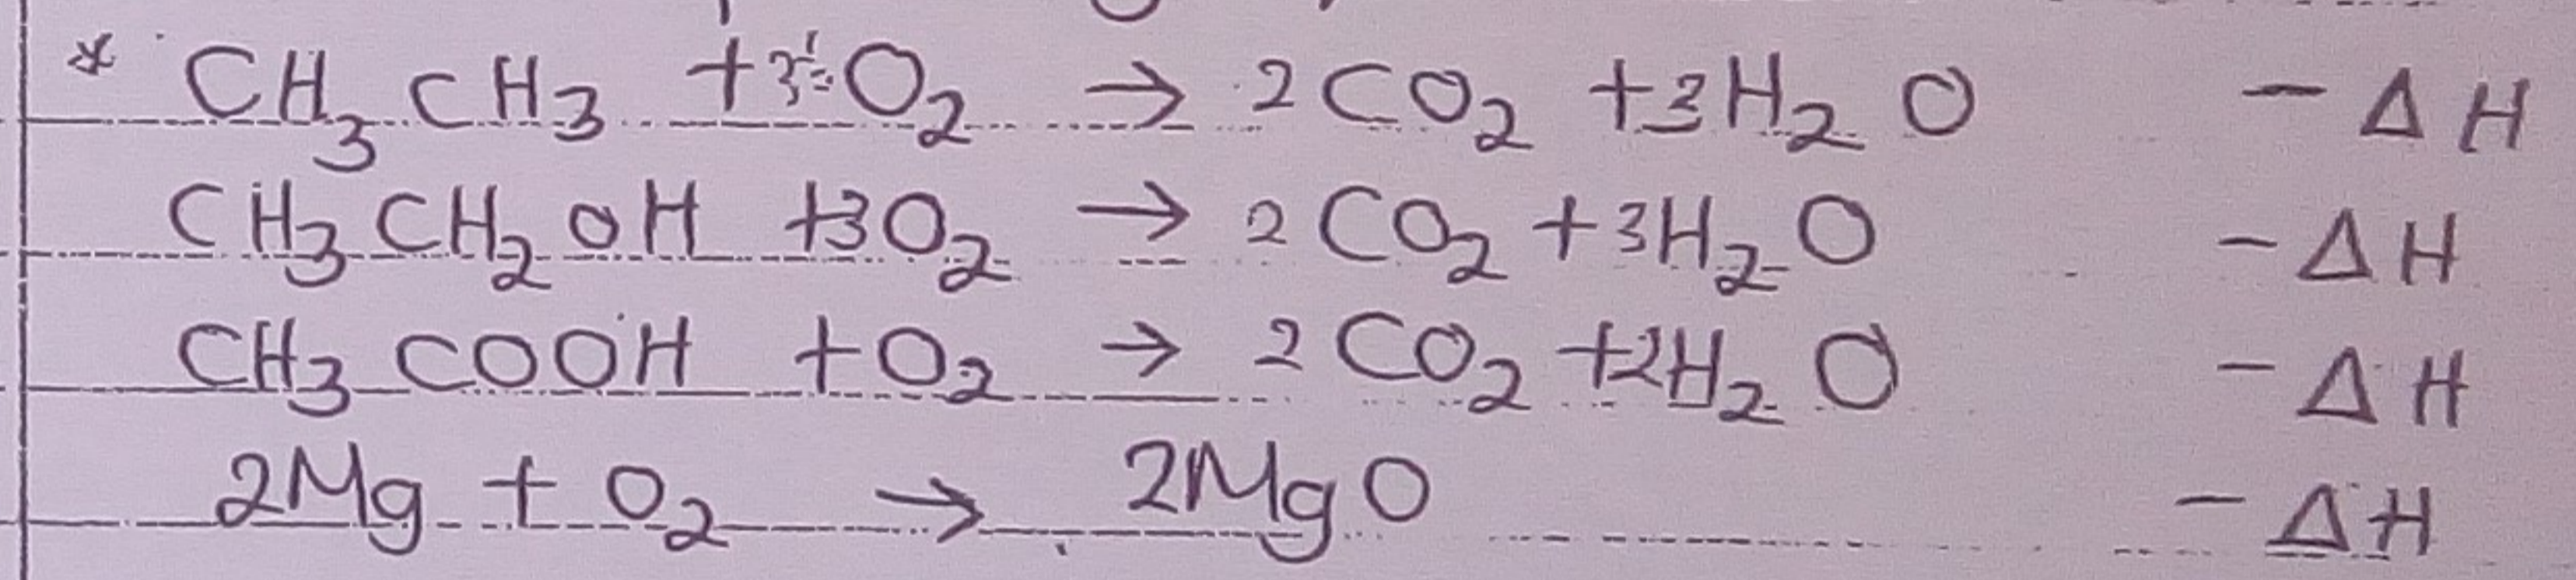 * CH₃CH₃ + 3½O₂ → 2CO₂ + 3H₂O - ΔH
CH₃CH₂OH + 3O₂ → 2CO₂ + 3H₂O - ΔH
CH₃COOH + O₂ → 2CO₂ + 2H₂O - ΔH
2Mg + O₂ → 2MgO - ΔH